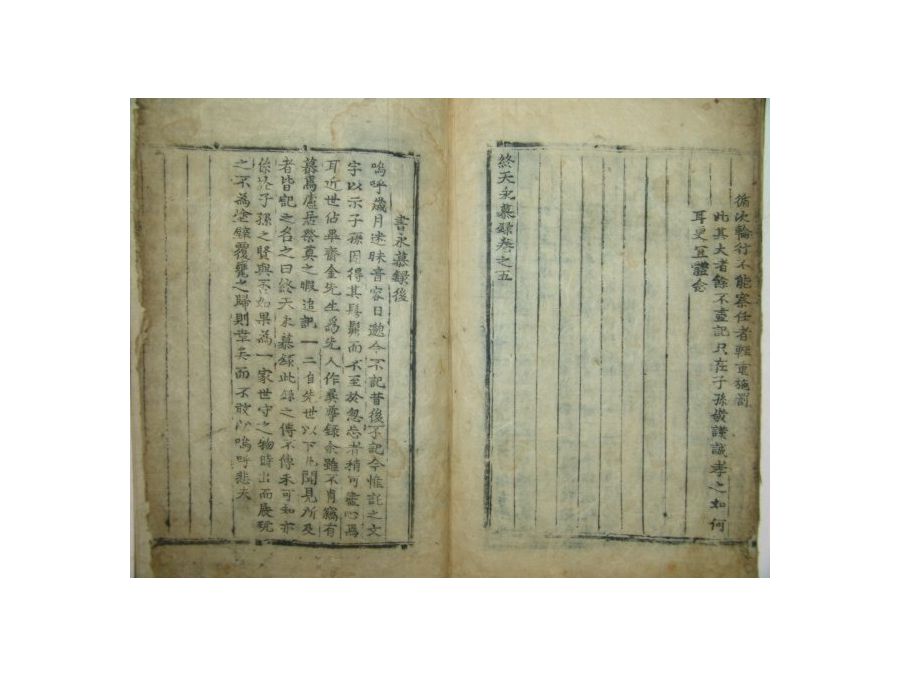 循次輪行不能察任者輕重施罰
此其大者餘不盡記只在子孫敬謹誠孝之如何
耳更宜體念
終天永慕錄卷之五
書永慕錄後
嗚呼歲月迷昧音容日邈今不記昔後不記今惟託之文
字以示子孫因得其髣髴而不至於忽忘者稍可盡心焉
耳近世佔畢齋金先生爲先人作彛尊錄余雖不肖竊有
慕焉廬居祭奠之暇追記一二自先世以下凡聞見所及
者皆記之名之曰終天永慕錄此錄之傳不傳未可知亦
係於子孫之賢與否如果爲一家世守之物時出而展玩
之不爲塗鴉覆甕之歸則幸矣而不敢必嗚呼悲夫